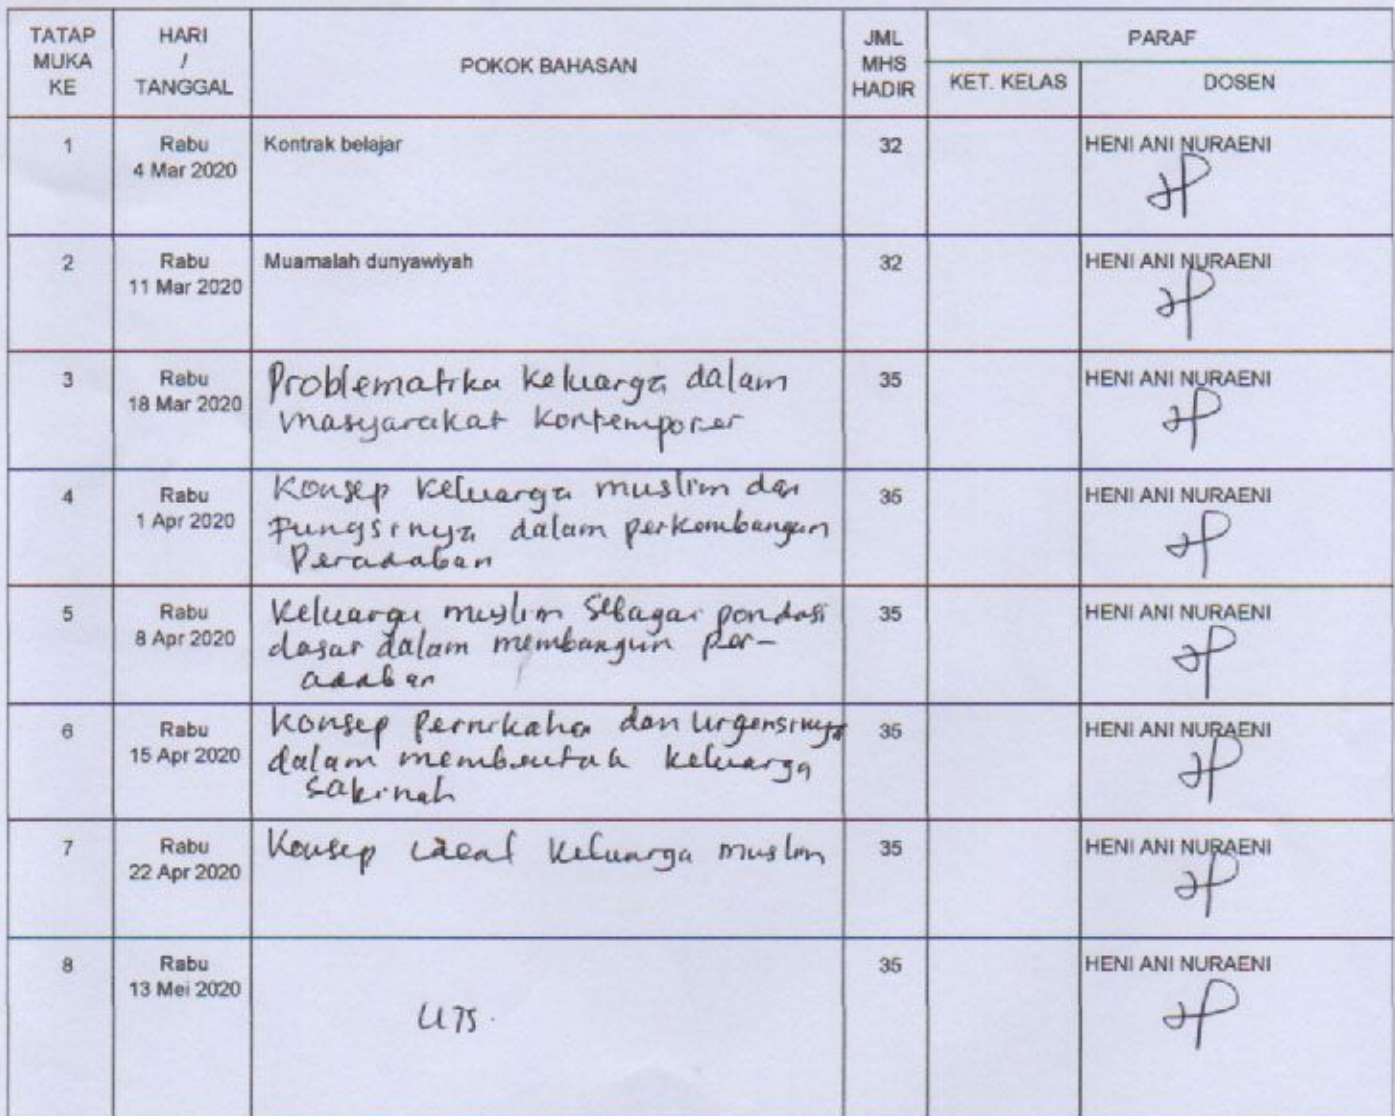 TATAP MUKA KE
HARI / TANGGAL
POKOK BAHASAN
JML MHS HADIR
PARAF
KET. KELAS
DOSEN
1
Rabu
4 Mar 2020
Kontrak belajar
32
HENI ANI NURAENI
2
Rabu
11 Mar 2020
Muamalah dunyawiyah
32
HENI ANI NURAENI
3
Rabu
18 Mar 2020
Problematika Keluarga dalam
masyarakat kontemporer
35
HENI ANI NURAENI
4
Rabu
1 Apr 2020
Konsep keluarga muslim dan
Fungsinya dalam perkembangan
Peradaban
35
HENI ANI NURAENI
5
Rabu
8 Apr 2020
Keluarga muslim sebagai pondasi
dasar dalam membangun per-
adaban
35
HENI ANI NURAENI
6
Rabu
15 Apr 2020
Konsep Pernikaha dan Urgensinya
dalam membentuk keluarga
Sakinah
35
HENI ANI NURAENI
7
Rabu
22 Apr 2020
Konsep ideal Keluarga muslim
35
HENI ANI NURAENI
8
Rabu
13 Mei 2020
UTS.
35
HENI ANI NURAENI